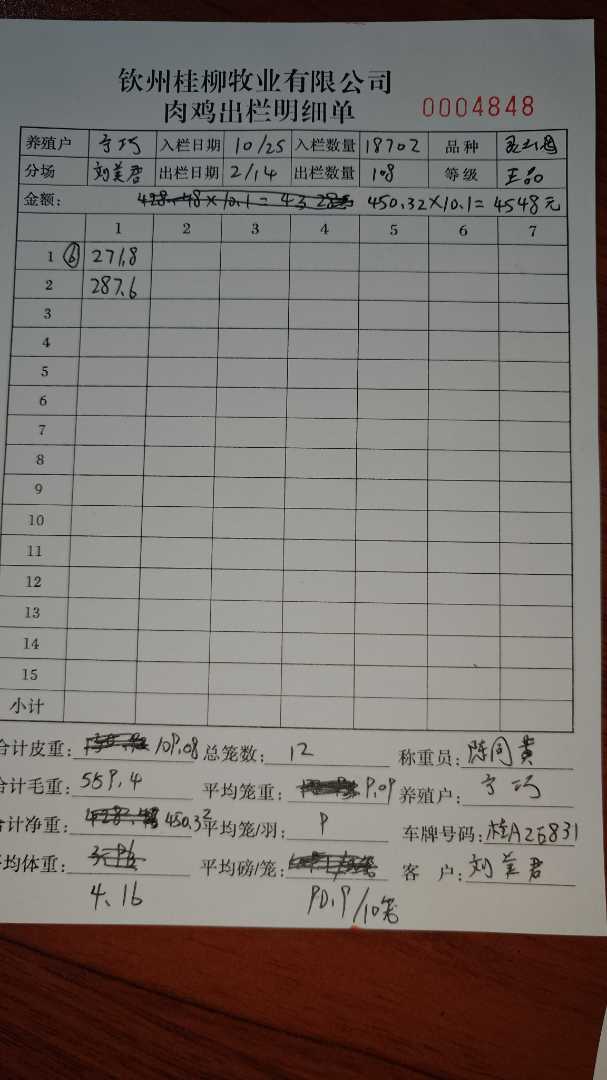 钦州桂柳牧业有限公司
肉鸡出栏明细单 0004848
养殖户 宁巧 入栏日期 10/25 入栏数量 18702 品种
分场 刘美君 出栏日期 2/14 出栏数量 108 等级 正品
金额: 450.32×10.1=4548元
1 2 3 4 5 6 7
1 ⑥ 271.8
2 287.6
3
4
5
6
7
8
9
10
11
12
13
14
15
小计
合计皮重: 109.08 总笼数: 12 称重员:
合计毛重: 559.4 平均笼重: 9.09 养殖户: 宁巧
合计净重: 450.32 平均笼/羽: 9 车牌号码: 桂A26831
平均体重: 平均磅/笼: 客 户: 刘美君
4.16 90.9/10笼